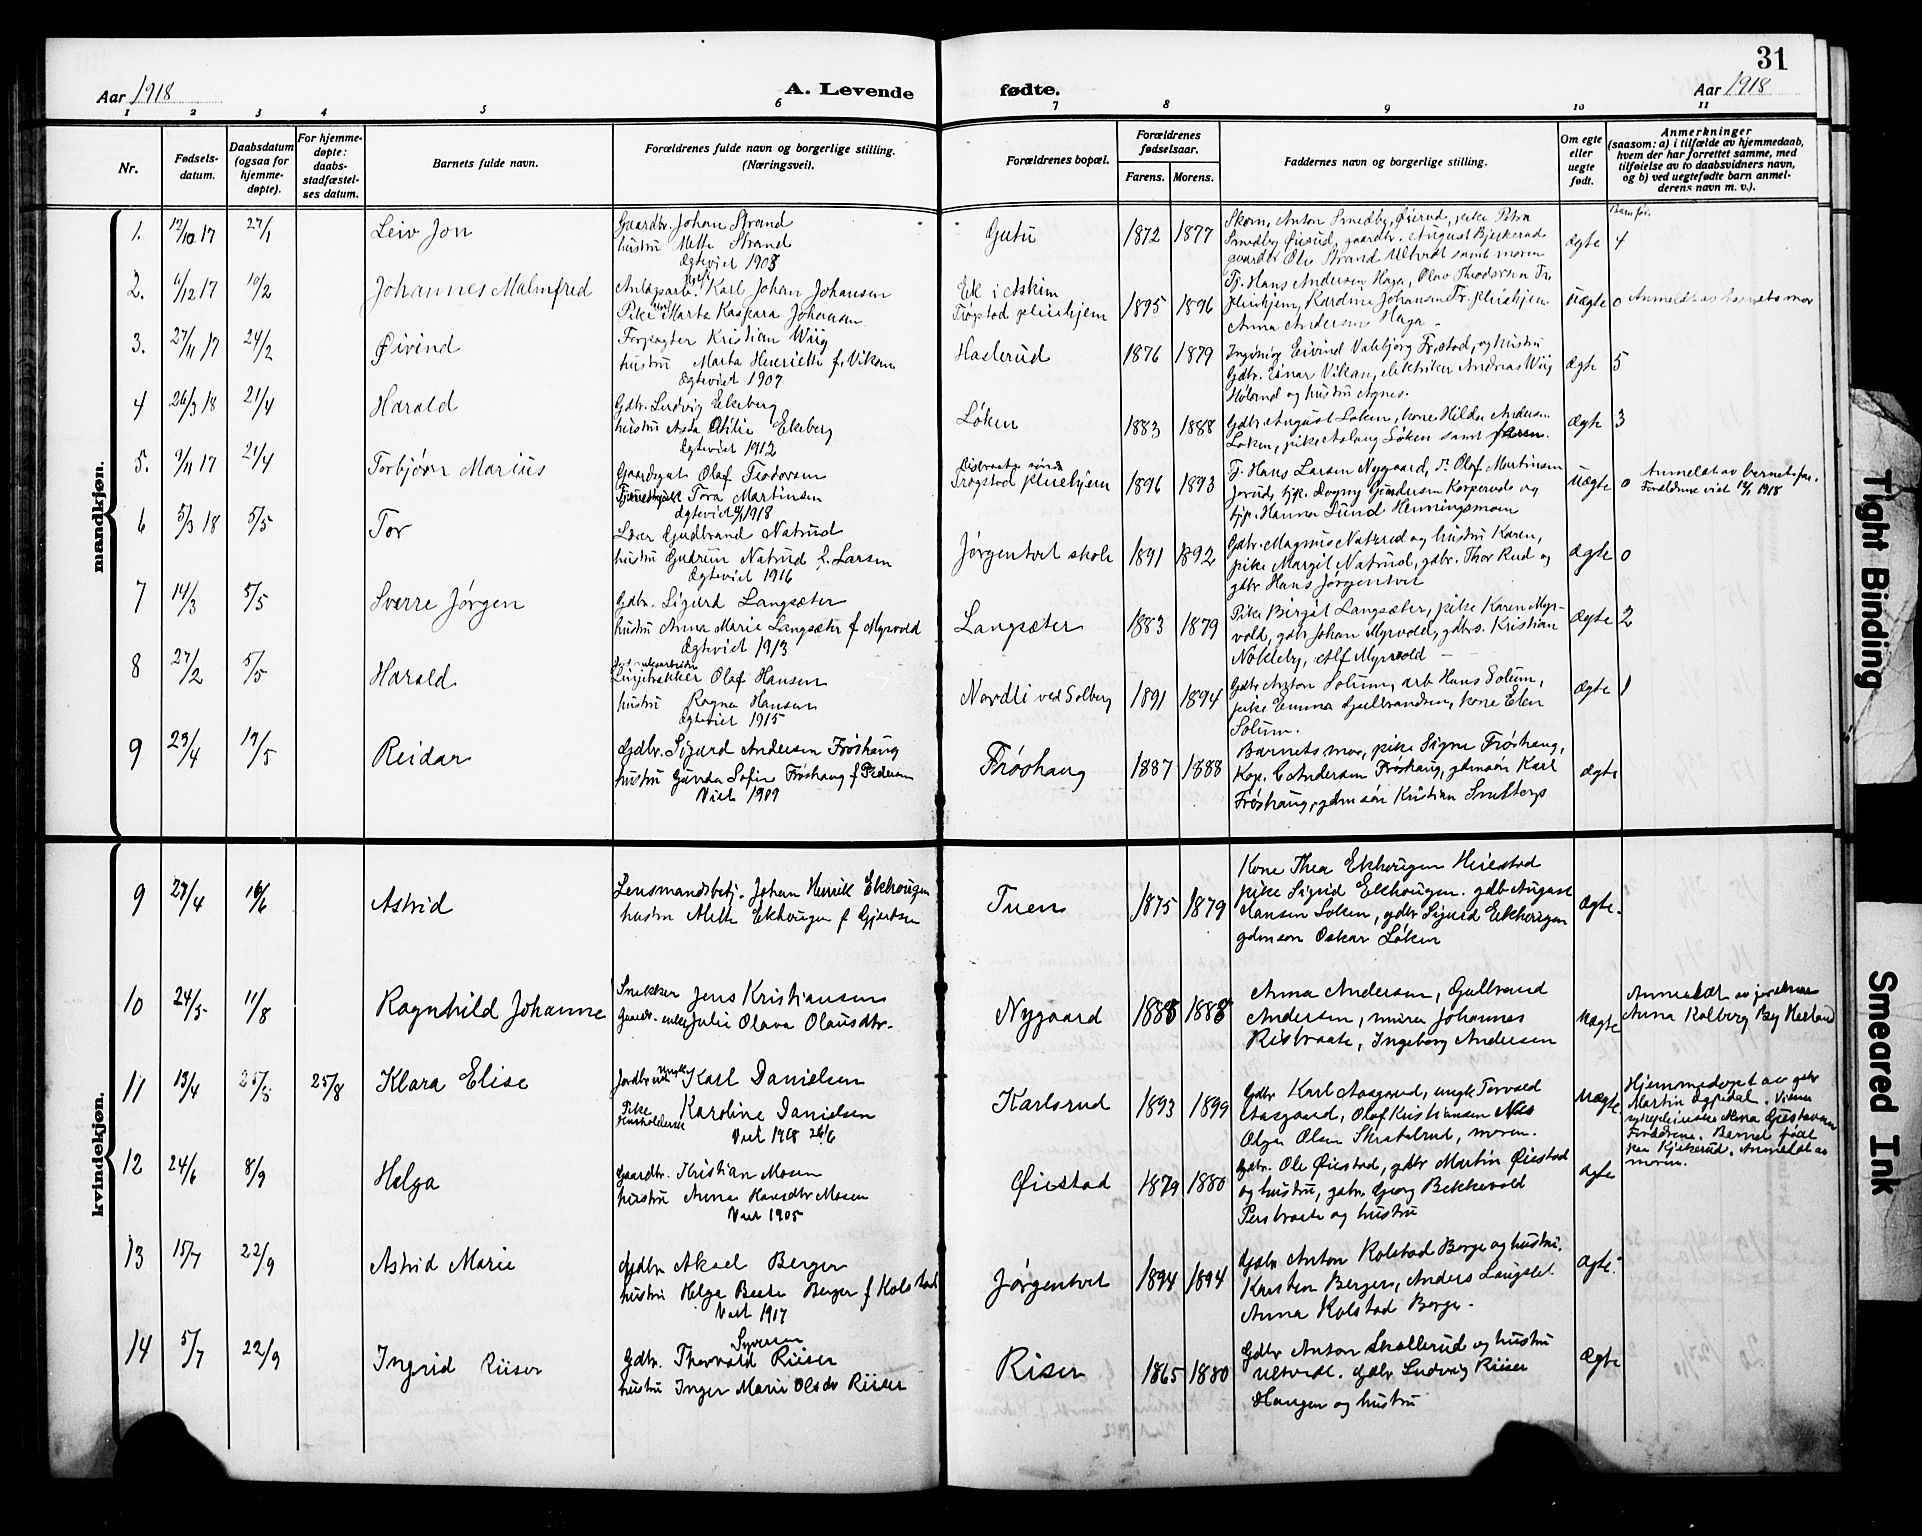 31
Aar 1918
A. Levende fødte.
Aar 1918
1 2 3 4 5 6 7 8 9 10 11
Nr.
Fødsels-
datum.
Daabsdatum
(ogsaa for
hjemme-
døpte).
For hjemme-
døpte:
daabs-
stadfæstel-
ses datum.
Barnets fulde navn.
Forældrenes fulde navn og borgerlige stilling.
(Næringsvei).
Forældrenes bopæl.
Forældrenes
fødselsaar.
Farens. Morens.
Faddernes navn og borgerlige stilling.
Om egte
eller
uegte
født.
Anmerkninger
(saasom: a) i tilfælde av hjemmedaab,
hvem der har forrettet samme, med
tilføielse av to daabsvidners navn,
og b) ved uegtefødte barn anmel-
derens navn m. v.).
mandkjøn.
1. 12/10 17 27/1 Leiv Jon
Gaardbr. Johan Strand
hustru Mette Strand
Ægteviet 1903
Gutu 1872 1877
Skom. Anton Smedby, Øierud, pike Petra
Smedby Øierud, gaardbr. August Bjerkerud
gaardbr Ole Strand Ultvedt samt moren
Ægte 4
2. 6/12 17 10/2 Johannes Malmfred
Anlægsarb. Karl Johan Johansen
Pike Marta Kaspara Johansen
Ek i Askim
Trøgstad pleiehjem 1895 1896
Tj. Hans Andersen Haga, Olav Theodorsen Tr.
pleiehjem, Karoline Johansen Tr. pleiehjem.
Anna Andersen Haga -
Uægte 0 Anmeldt av barnets mor
3. 27/11 17 24/2 Øivind
Forpagter Kristian Wiig
hustru Marta Henriette f. Vikan
Ægteviet 1907
Haslerud 1876 1879
Eivind
Gdbr. Einar Vikan, elektriker Andreas Wiig
Høland og hustru Agnes.
Ægte 5
4 26/3 18 21/4 Harald
Gdbr. Ludvig Ekeberg
hustru Asta Otilie Ekeberg
Ægteviet 1912
Løken 1883 1888
Gdbr. August Løken, kone Hilda Andersen
Løken, pike Aslaug Løken samt faren.
Ægte 3
5. 9/11 17 21/4 Torbjørn Marius
Gaardsgut Olaf Teodorsen
Tora Martinsen
Ægteviet 1918
Trøgstad pleiehjem 1896 1893
Tj. Hans Larsen Nygaard, Olaf Martinsen
tjp. Dagny Gundersen Korperud og
tjp. Hanna Lund Henningsmoen
Uægte 0 Anmeldt av barnets far.
Forældrene viet 1918
6 5/3 18 5/5 Tor
Lærer Gudbrand Natrud
hustru Gudrun Natrud f. Larsen
Ægteviet 1916
Jørgentvet skole 1891 1892
Gdbr. Magnus Natrud og hustru Karen,
pike Margit Natrud, gdbr. Thor Rud og
gdbr Hans Jørgentvet
Ægte 0
7 14/3 5/5 Sverre Jørgen
Gdbr. Sigurd Langsæter
hustru Anna Marie Langsæter f Myrvold
Ægteviet 1913
Langsæter 1883 1879
Pike Birgit Langsæter, pike Karen Myr-
vold, gdbr Johan Myrvold, gdbrs. Kristian
Nokleby, Alf Myrvold -
Ægte 2
8 27/2 5/5 Harald
Olaf Hansen
hustru Ragna Hansen
Ægteviet 1915
Nordli ved Solberg 1891 1894
Gdbr Anton Solum, arb Hans Solum,
pike Emma Gulbrandsen, kone Elen
Solum.
Ægte 1
9 23/4 19/5 Reidar
Gdbr. Sigurd Andersen Frøshaug
hustru Gunda Sofie Frøshaug f Pedersen
Viet 1909
Frøshaug 1887 1888
Barnets mor, pike Signe Frøshaug,
Kap. C Andersen Frøshaug, gdmsøn Karl
Frøshaug, gdmsøn Kristian
ægte
kvindekjøn.
9 27/4 16/6 Astrid
Lensmandsbetj. Johan Henrik Ekhougen
hustru Mette Ekhougen f Gjertsen
Tuen 1875 1879
Kone Thea Ekhougen
pike Sigrid Ekhougen. gdbr August
Hansen Løken, gdbr Sigurd Ekhougen
gdmsøn Oskar Løken
Ægte.
10 24/5 11/8 Ragnhild Johanne
Snekker Jens Kristiansen
Gaardbr. enke Julie Olava Olausdtr.
Nygaard 1885 1888
Anna Andersen, Gulbrand
Andersen, murer Johannes
Risbraate, Ingeborg Andersen
Uægte
Anmeldt av
Anna Kolberg
11 13/4 25/8 Klara Elise
Karl Danielsen
Pike Karoline Danielsen
Viet 1918 26/6
Karlsrud 1893 1899
Gdbr Karl Aasgaard, ungk Torvald
Aasgaard, Olaf Kristiansen
Olga Olsen Skrabelrud, moren.
Uægte.
Hjemmedøpt av gdbr
Martin
Forældrene. Barnet født
paa Kjikerud. Anmeldt av
moren.
12 24/6 8/9 Helga
Gaardbr. Kristian Mosen
hustru Anna Hansdtr Mosen
Viet 1905
Øiestad 1879 1880
Gdbr. Ole Øiestad, gdbr Martin Øiestad
og hustru, gdbr Georg Bekkevold
Persbraate og hustru
Ægte
13 15/7 22/9 Astrid Marie
Gdbr Aksel Berger
hustru Helga Beate Berger f Kolstad
Viet 1917
Jørgentvet 1894 1894
Gdbr Anton Kolstad Berge og hustru.
Karsten Berger, Anders Langslet.
Anna Kolstad Berge.
Ægte
14 5/7 22/9 Ingrid Riiser
Gdbr. Thorvald Riiser
hustru Inger Marie Olsdtr Riiser
Riser 1865 1880
Gdbr Anton Skallerud og hustru
Ultvedt. gdbr Ludvig Riiser
Haugen og hustru
Ægte
Tight Binding
Smeared Ink